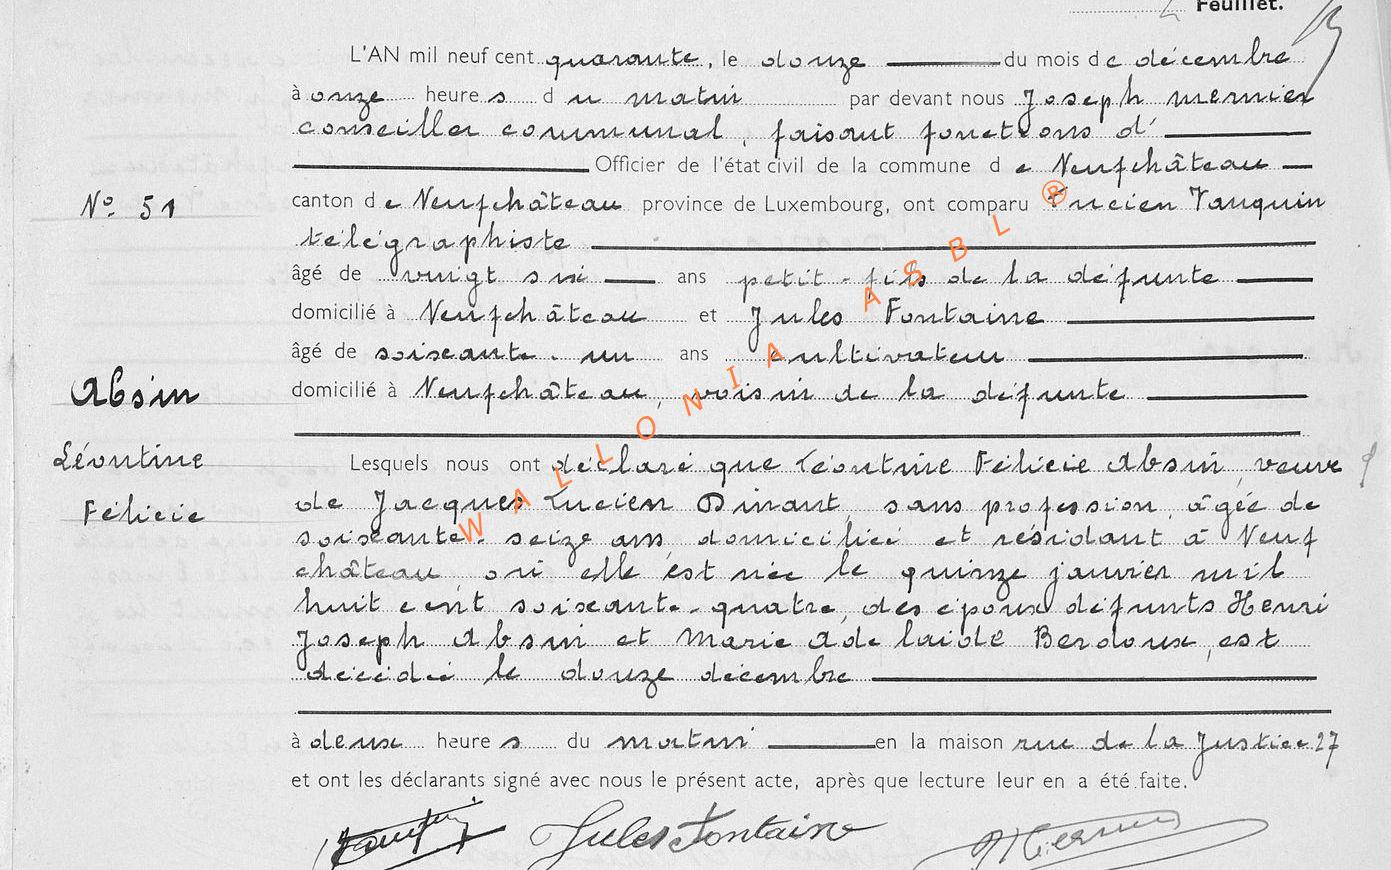 Feuillet.
L'AN mil neuf cent quarante, le douze du mois de décembre
à onze heures du matin par devant nous Joseph Mernier
conseiller communal, faisant fonctions d'
Officier de l'état civil de la commune de Neufchâteau
N° 51
canton de Neufchâteau province de Luxembourg, ont comparu Lucien Vauquin
télégraphiste
âgé de vingt six ans petit-fils de la défunte
domicilié à Neufchâteau et Jules Fontaine
âgé de soixante-un ans cultivateur
Absin
domicilié à Neufchâteau, voisin de la défunte
Léontine
Lesquels nous ont déclaré que Léontine Félicie Absin, veuve
Félicie
de Jacques Lucien Dinant, sans profession, âgée de
soixante-seize ans, domiciliée et résidant à Neuf
château, où elle est née le quinze janvier mil
huit cent soixante-quatre, des époux défunts Henri
Joseph Absin et Marie Adelaïde Berdoux, est
décédée le douze décembre
à deux heures du matin en la maison rue de la Justice 27
et ont les déclarants signé avec nous le présent acte, après que lecture leur en a été faite.
Jules Fontaine
WALLONIA ASBL ®